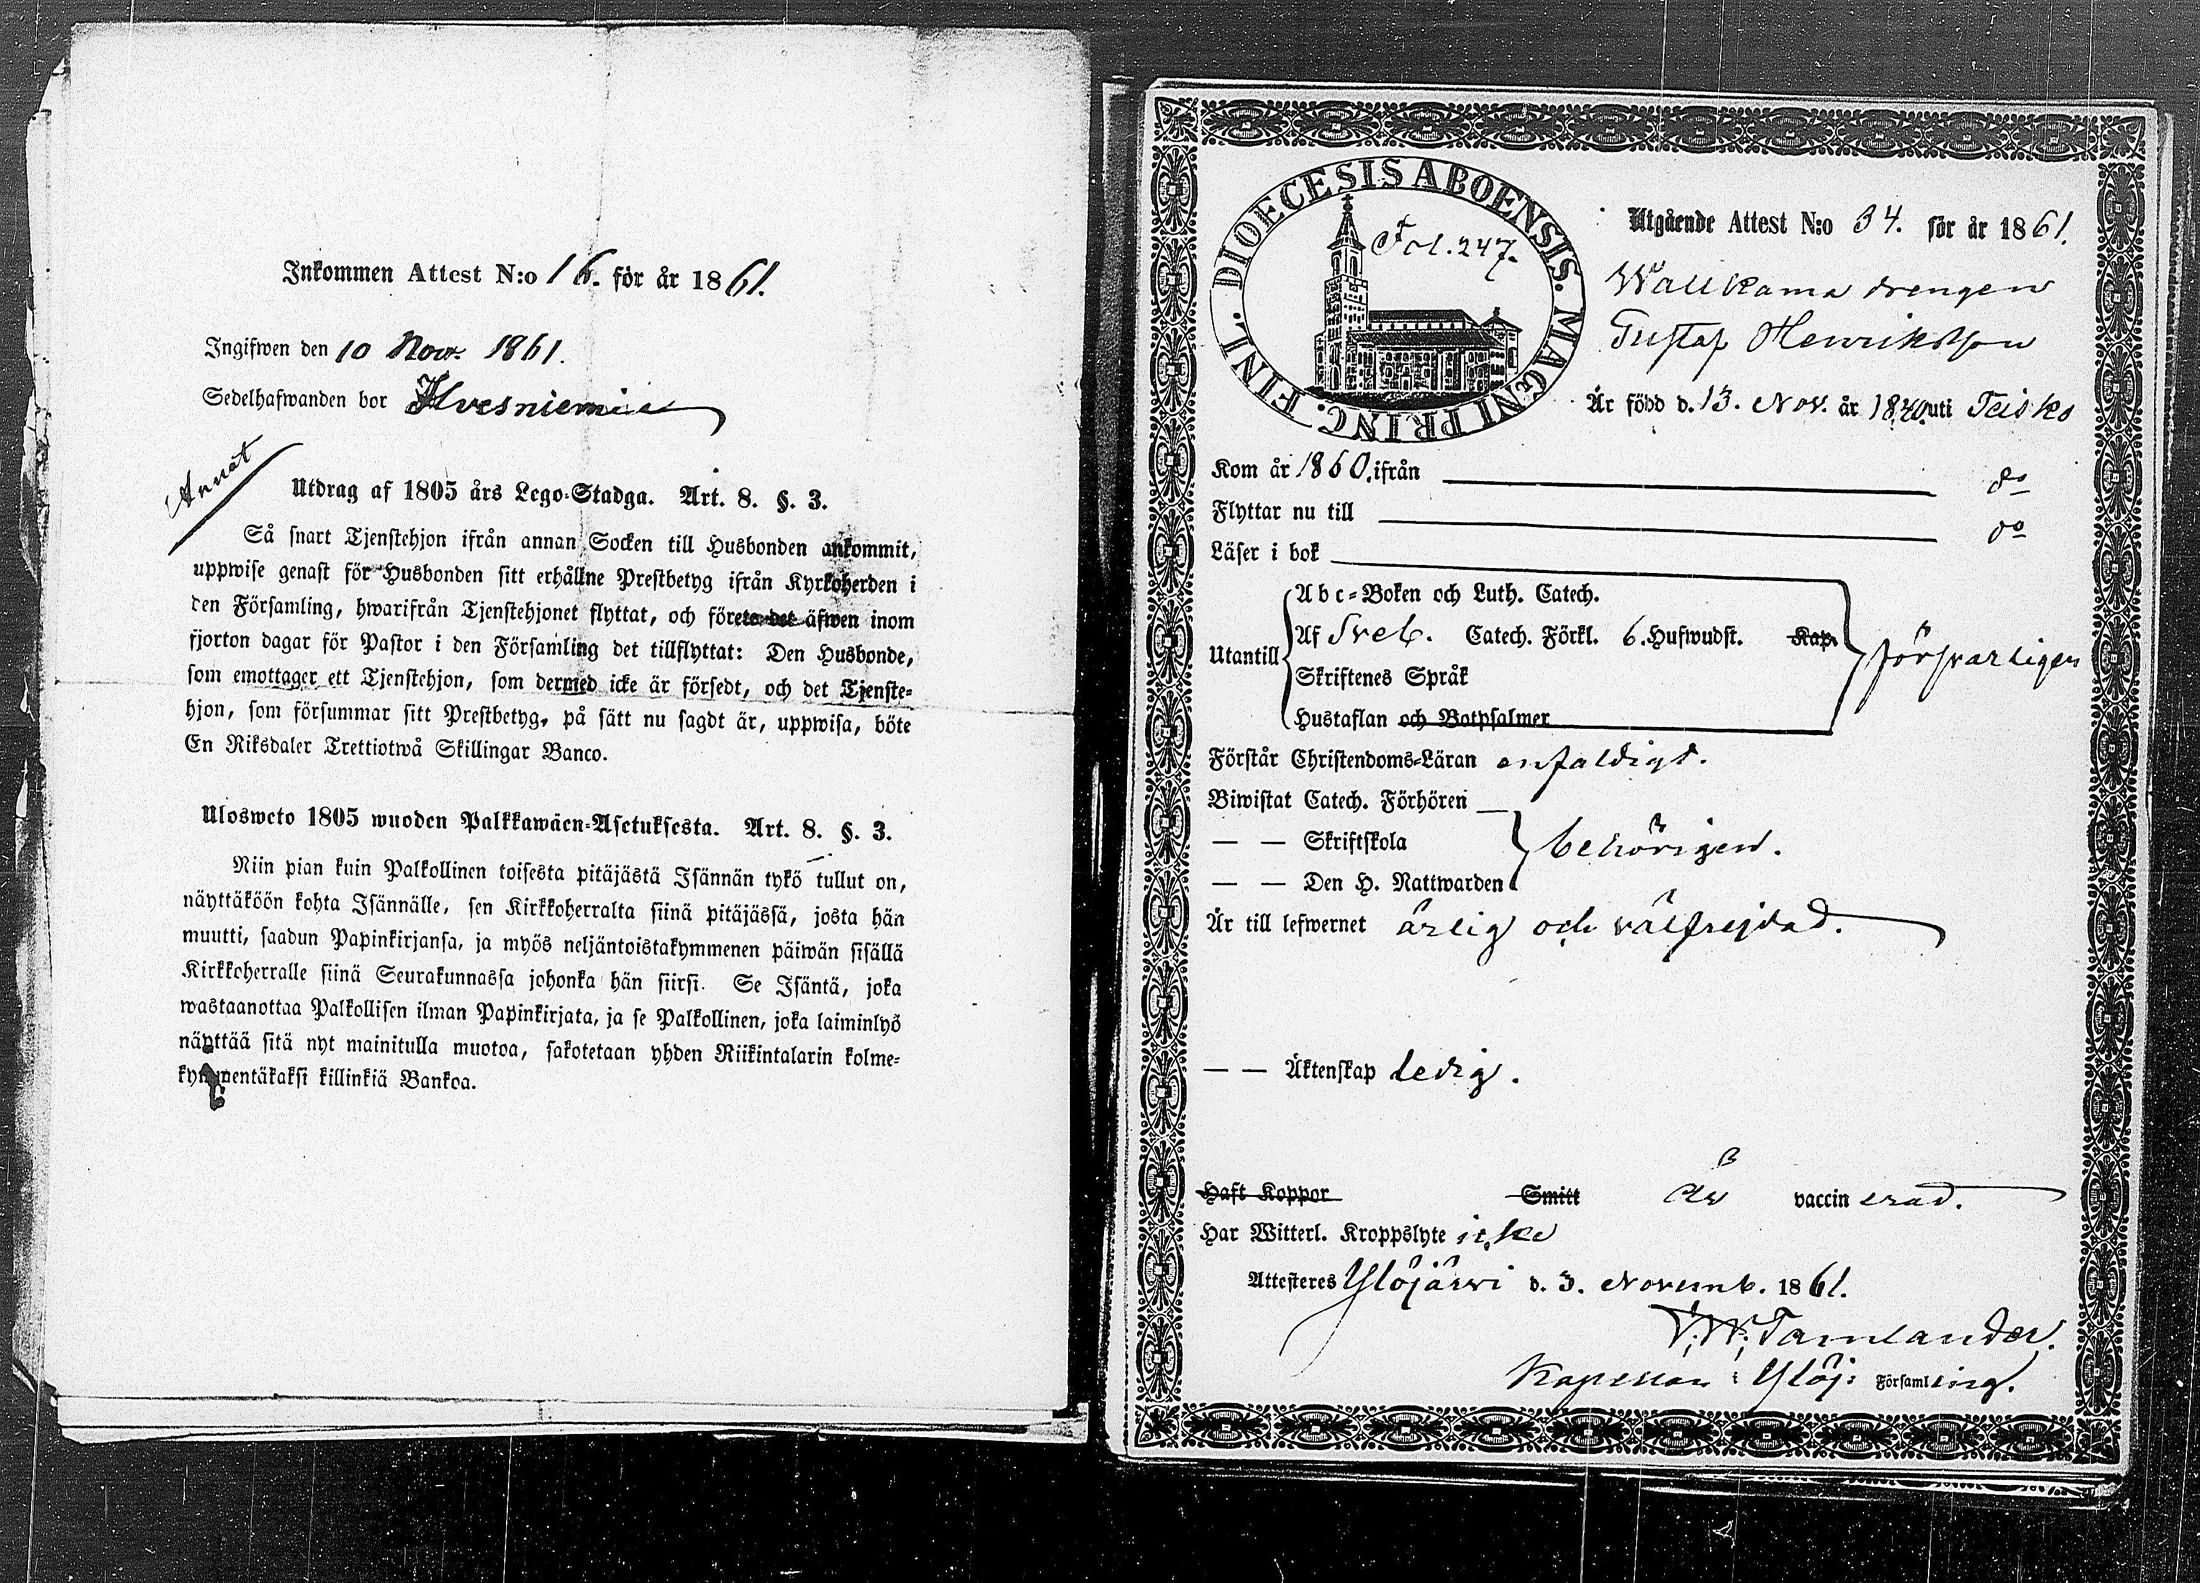 Inkommen Attest N:o 16. för år 1861.
Ingifwen den 10 Nov. 1861.
Sedelhafwanden bor
Annat
Utdrag af 1805 års Lego-Stadga. Art. 8. §. 3.
Så snart Tjenstehjon ifrån annan Socken till Husbonden ankommit,
uppwise genast för Husbonden sitt erhållne Prestbetyg ifrån Kyrkoherden i
den Församling, hwarifrån Tjenstehjonet flyttat, och förete det äfwen inom
fjorton dagar för Pastor i den Församling det tillflyttat: Den Husbonde,
som emottager ett Tjenstehjon, som dermed icke är försedt, och det Tjenste-
hjon, som försummar sitt Prestbetyg, på sätt nu sagdt är, uppwisa, böte
En Riksdaler Trettiotwå Skillingar Banco.
Ulosweto 1805 wuoden Palkkawäen-Asetuksesta. Art. 8. §. 3.
Niin pian kuin Palkollinen toisesta pitäjästä Isännän tykö tullut on,
näyttäköön kohta Isännälle, sen Kirkkoherralta siinä pitäjässä, josta hän
muutti, saadun Papinkirjansa, ja myös neljäntoistakymmenen päiwän sisällä
Kirkkoherralle siinä Seurakunnassa johonka hän siirsi. Se Isäntä, joka
wastaanottaa Palkollisen ilman Papinkirjata, ja se Palkollinen, joka laiminlyö
näyttää sitä nyt mainitulla muotoa, sakotetaan yhden Riikintalarin kolme-
kymmentäkaksi killinkiä Bankoa.
DIOECESIS ABOENSIS. MAGNI PRINC. FINL.
Fol. 247.
Utgående Attest N:o 34. för år 1861.
Wallkama drengen
Gustaf Henriksson
Är född d. 13. Nov. år 1840 uti Teisko
Kom år 1860. ifrån do
Flyttar nu till do
Läser i bok
Utantill
Abc-Boken och Luth. Catech.
Af Sveb. Catech. Förkl. 6. Hufwudst. Kap.
Skriftenes Språk
Hustaflan och Botpsalmer
försvarligen
Förstår Christendoms-Läran enfaldigt.
Biwistat Catech. Förhören
— — Skriftskola
— — Den H. Nattwarden
behörigen.
Är till lefwernet ärlig och välfrejdad.
— — Äktenskap ledig.
Haft Koppor Smitt är vaccinerad.
Har Witterl. Kroppslyte icke
Attesteras Ylöjärvi d. 3. Novemb. 1861.
Tamlander.
Kapellan i Ylöj: Församling.